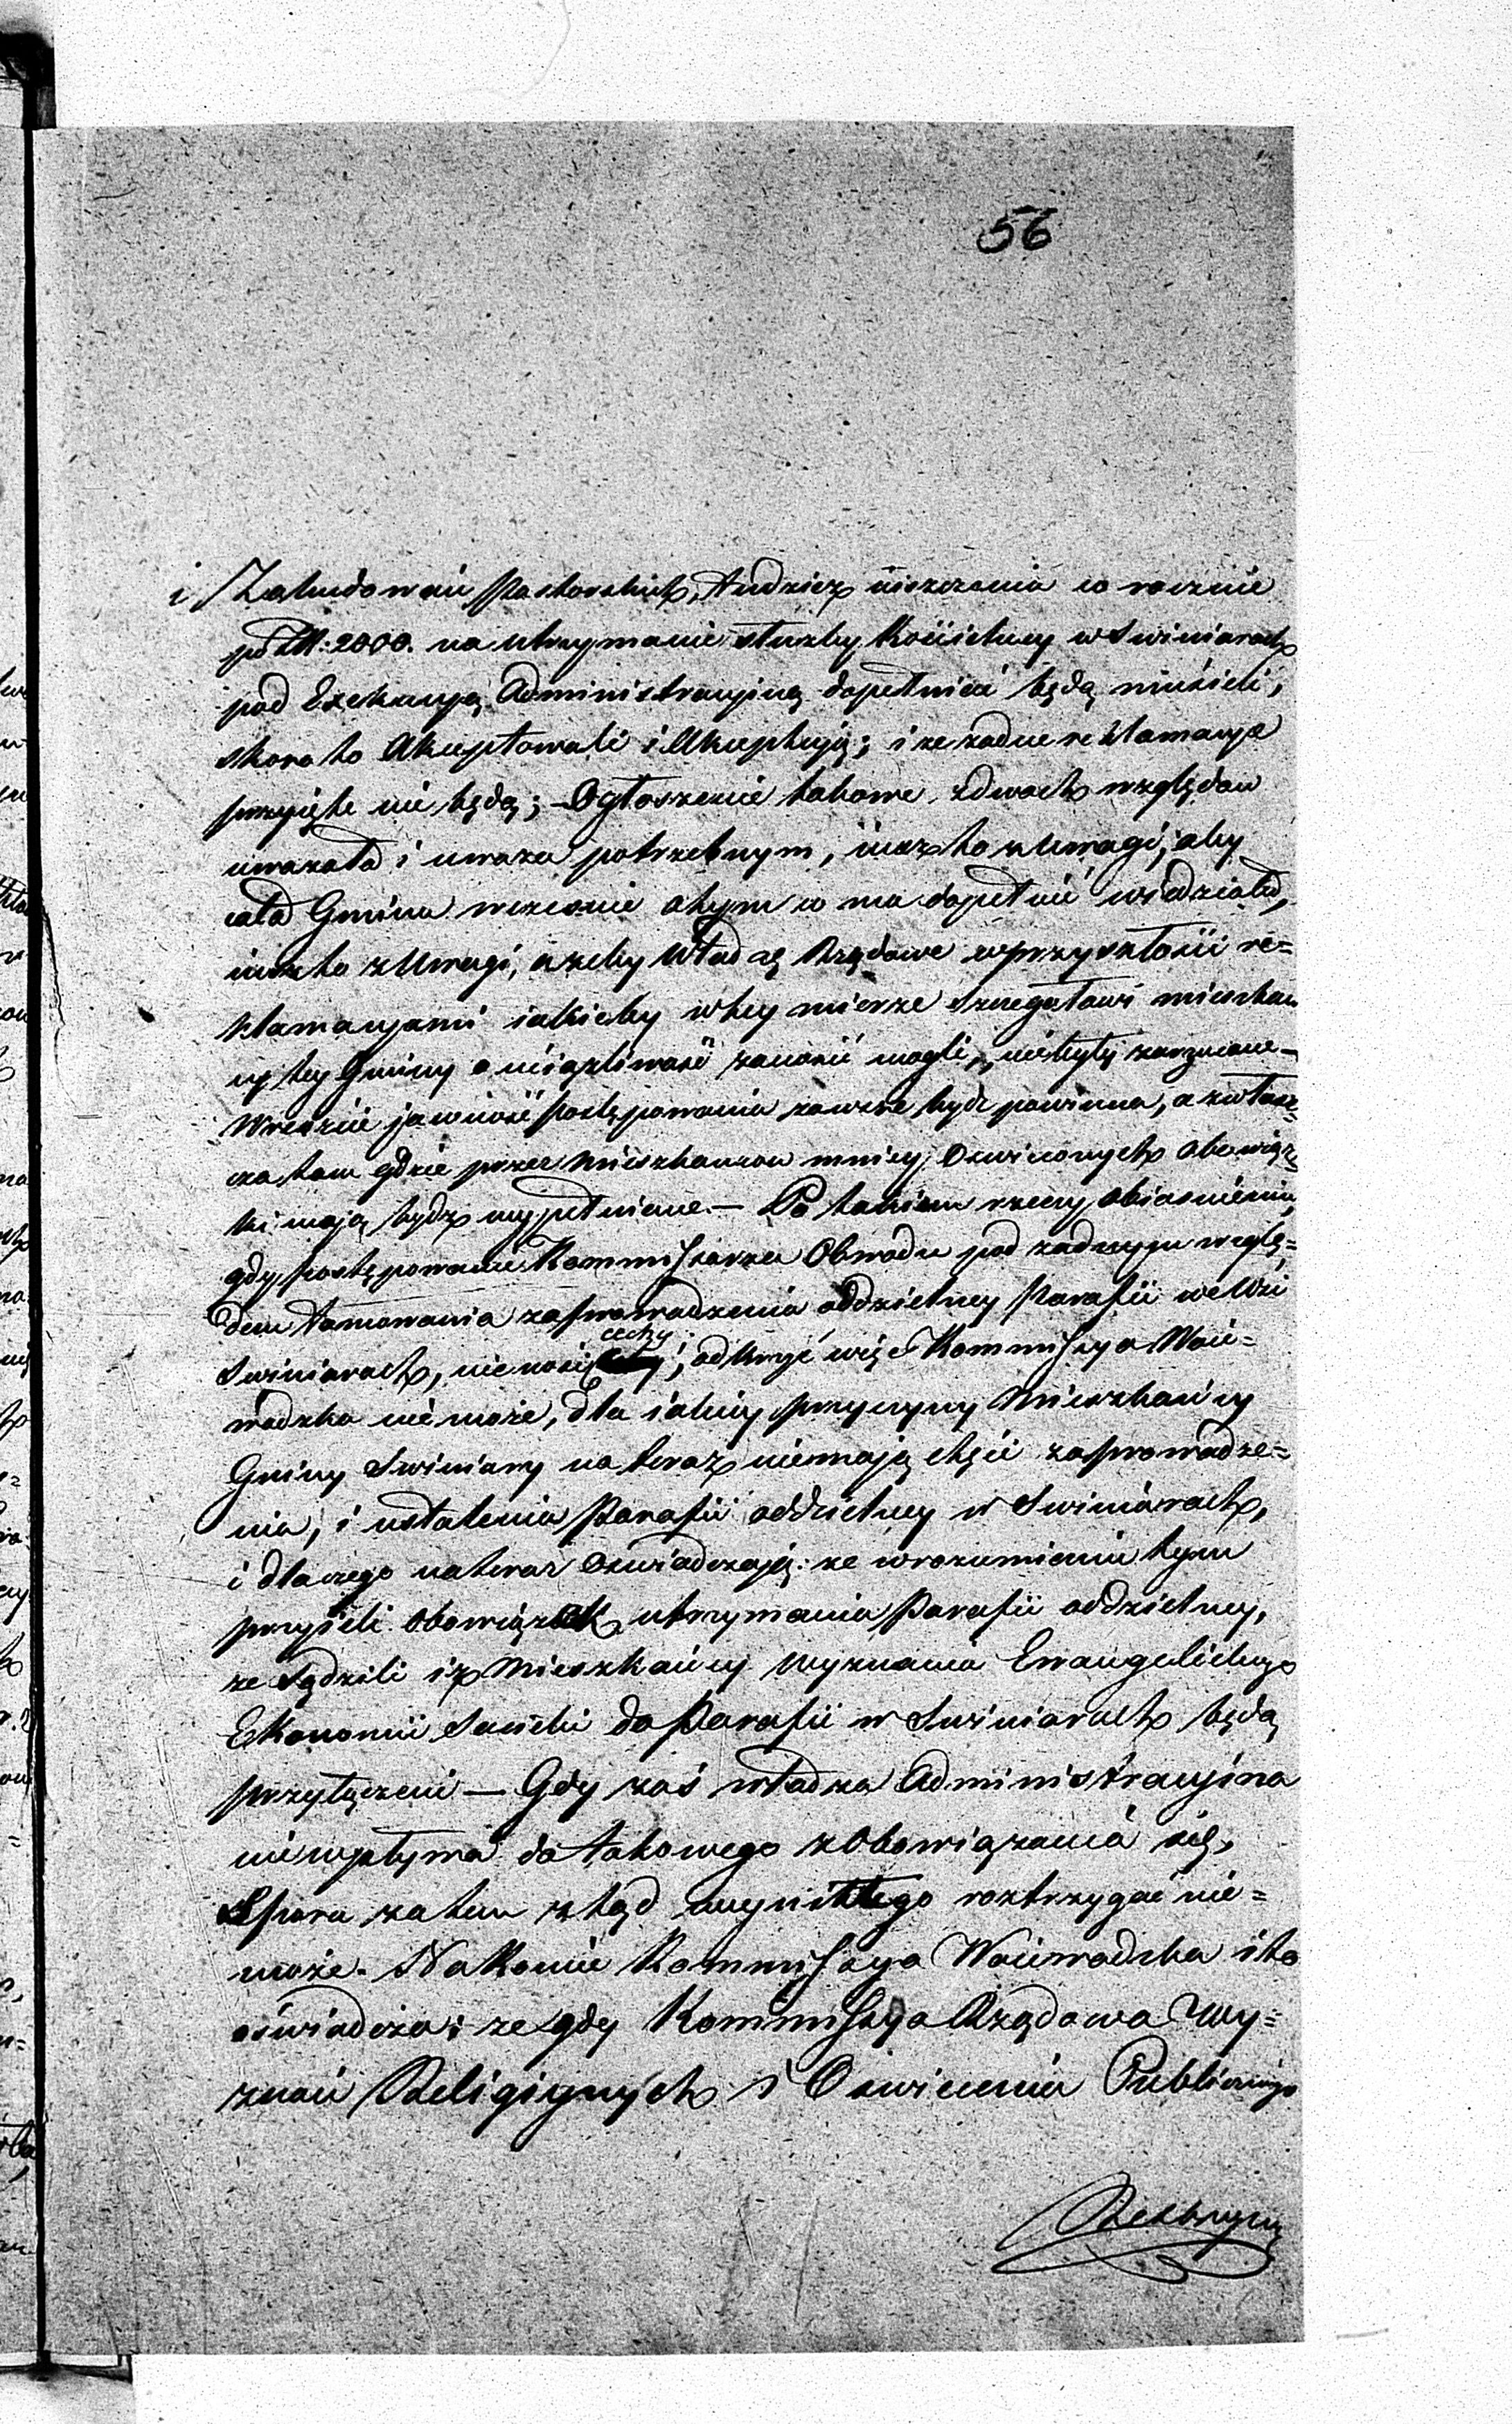 56
i Zabudowań Pastorskich, tudzież uiszczania co rocznie
po Zł: 2000. na utrzymanie służby Kościelney w Swiniarach
pod Exekucyą Administracyiną dopełniać będą musieli,
skoro to Akceptowali i Akceptują; i że żadne reklamacye
przyięte nie będą; – Ogłoszenie takowe z dwoch względow
uważała i uważa potrzebnym, iuż to z Uwagi, aby
cała Gmina wcześnie o tym co ma dopełnić wiedziała,
iuż to z Uwagi, ażeby Władzę Rządowe w przyszłości re=
klamacyami iakieby w tey mierze Szczegołowi mieszkań
cy tey Gminy o uciążliwość zanosić mogli, niebyły zarzucane –
Wreszcie jawność postępowania zawsze bydź powinna, a zwłasz=
cza tam gdzie przez Mieszkancow mniey Oswieconych obowiąz=
ki mają bydz wypełniane. – Po takiem rzeczy obiasnieniu,
gdy postępowanie Kommissarza Obwodu pod żadnym wzglę=
dem tamowania zaprowadzenia oddzielney Parafii we Wsi
Swiniarach, nie nosi cechy; odkryć więc Kommissya Woie=
wodzka nie może, dla iakiey przyczyny Mieszkańcy
Gminy Swiniary na teraz niemają chęci zaprowadze=
nia, i ustalenia Parafii oddzielney w Swiniarach,
i dlaczego na teraz Oswiadczają: że w rozumieniu tym
przyieli obowiązek utrzymania Parafii oddzielney,
że Sądzili iż Mieszkańcy Wyznania Ewangelickiego
Ekonomii Sannicki do Parafii w Swiniarach będą
przyłączeni – Gdy zaś władza Administracyina
niewpływa do takowego zobowiązania się,
Sporu zatem ztąd wynikłego roztrzygać nie=
może. Nakoniec Kommissya Woiewodzka i to
oświadcza: że gdy Kommissya Rządowa Wy=
znań Religiynych i Oswiecenia Publicznego